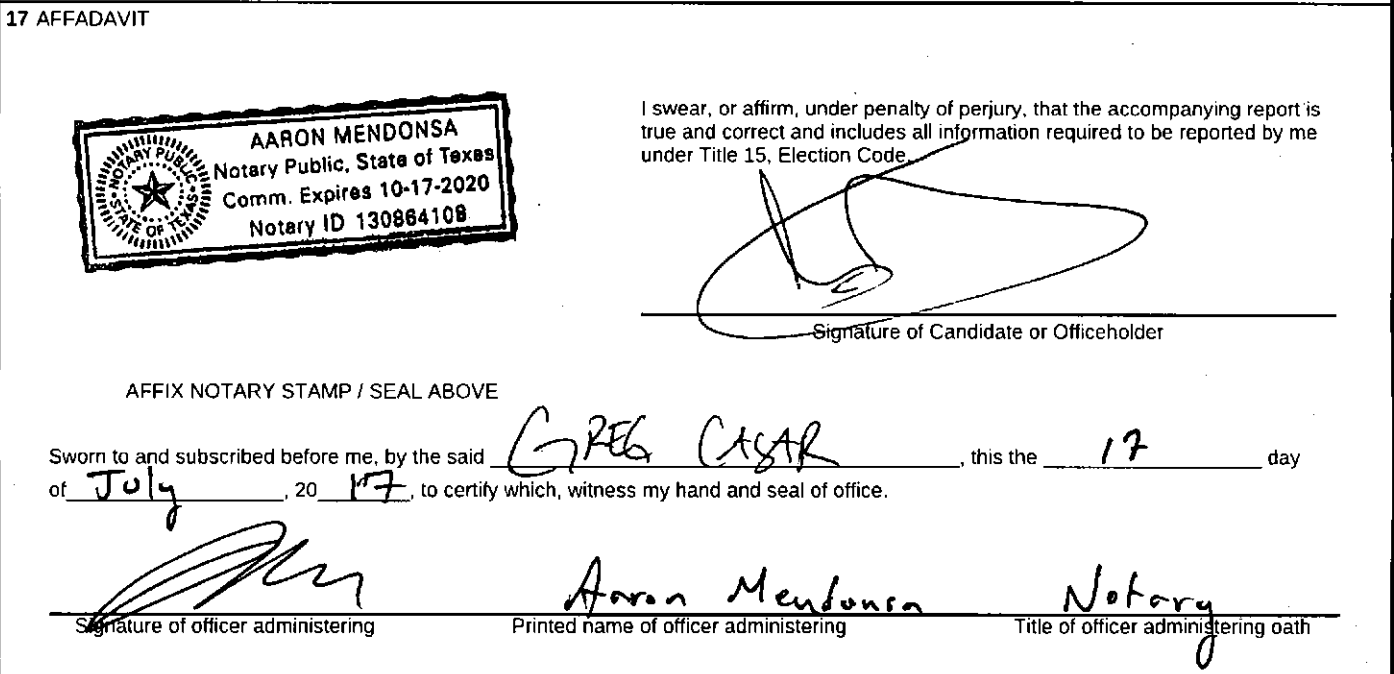 17 AFFADAVIT
AARON MENDONSA
Notary Public, State of Texas
Comm. Expires 10-17-2020
Notary ID 130864108
NOTARY PUBLIC
STATE OF TEXAS
I swear, or affirm, under penalty of perjury, that the accompanying report is
true and correct and includes all information required to be reported by me
under Title 15, Election Code.
Signature of Candidate or Officeholder
AFFIX NOTARY STAMP / SEAL ABOVE
Sworn to and subscribed before me, by the said GREG CASAR, this the 17 day
of July, 20 17, to certify which, witness my hand and seal of office.
Aaron Mendonsa Notary
Signature of officer administering Printed name of officer administering Title of officer administering oath